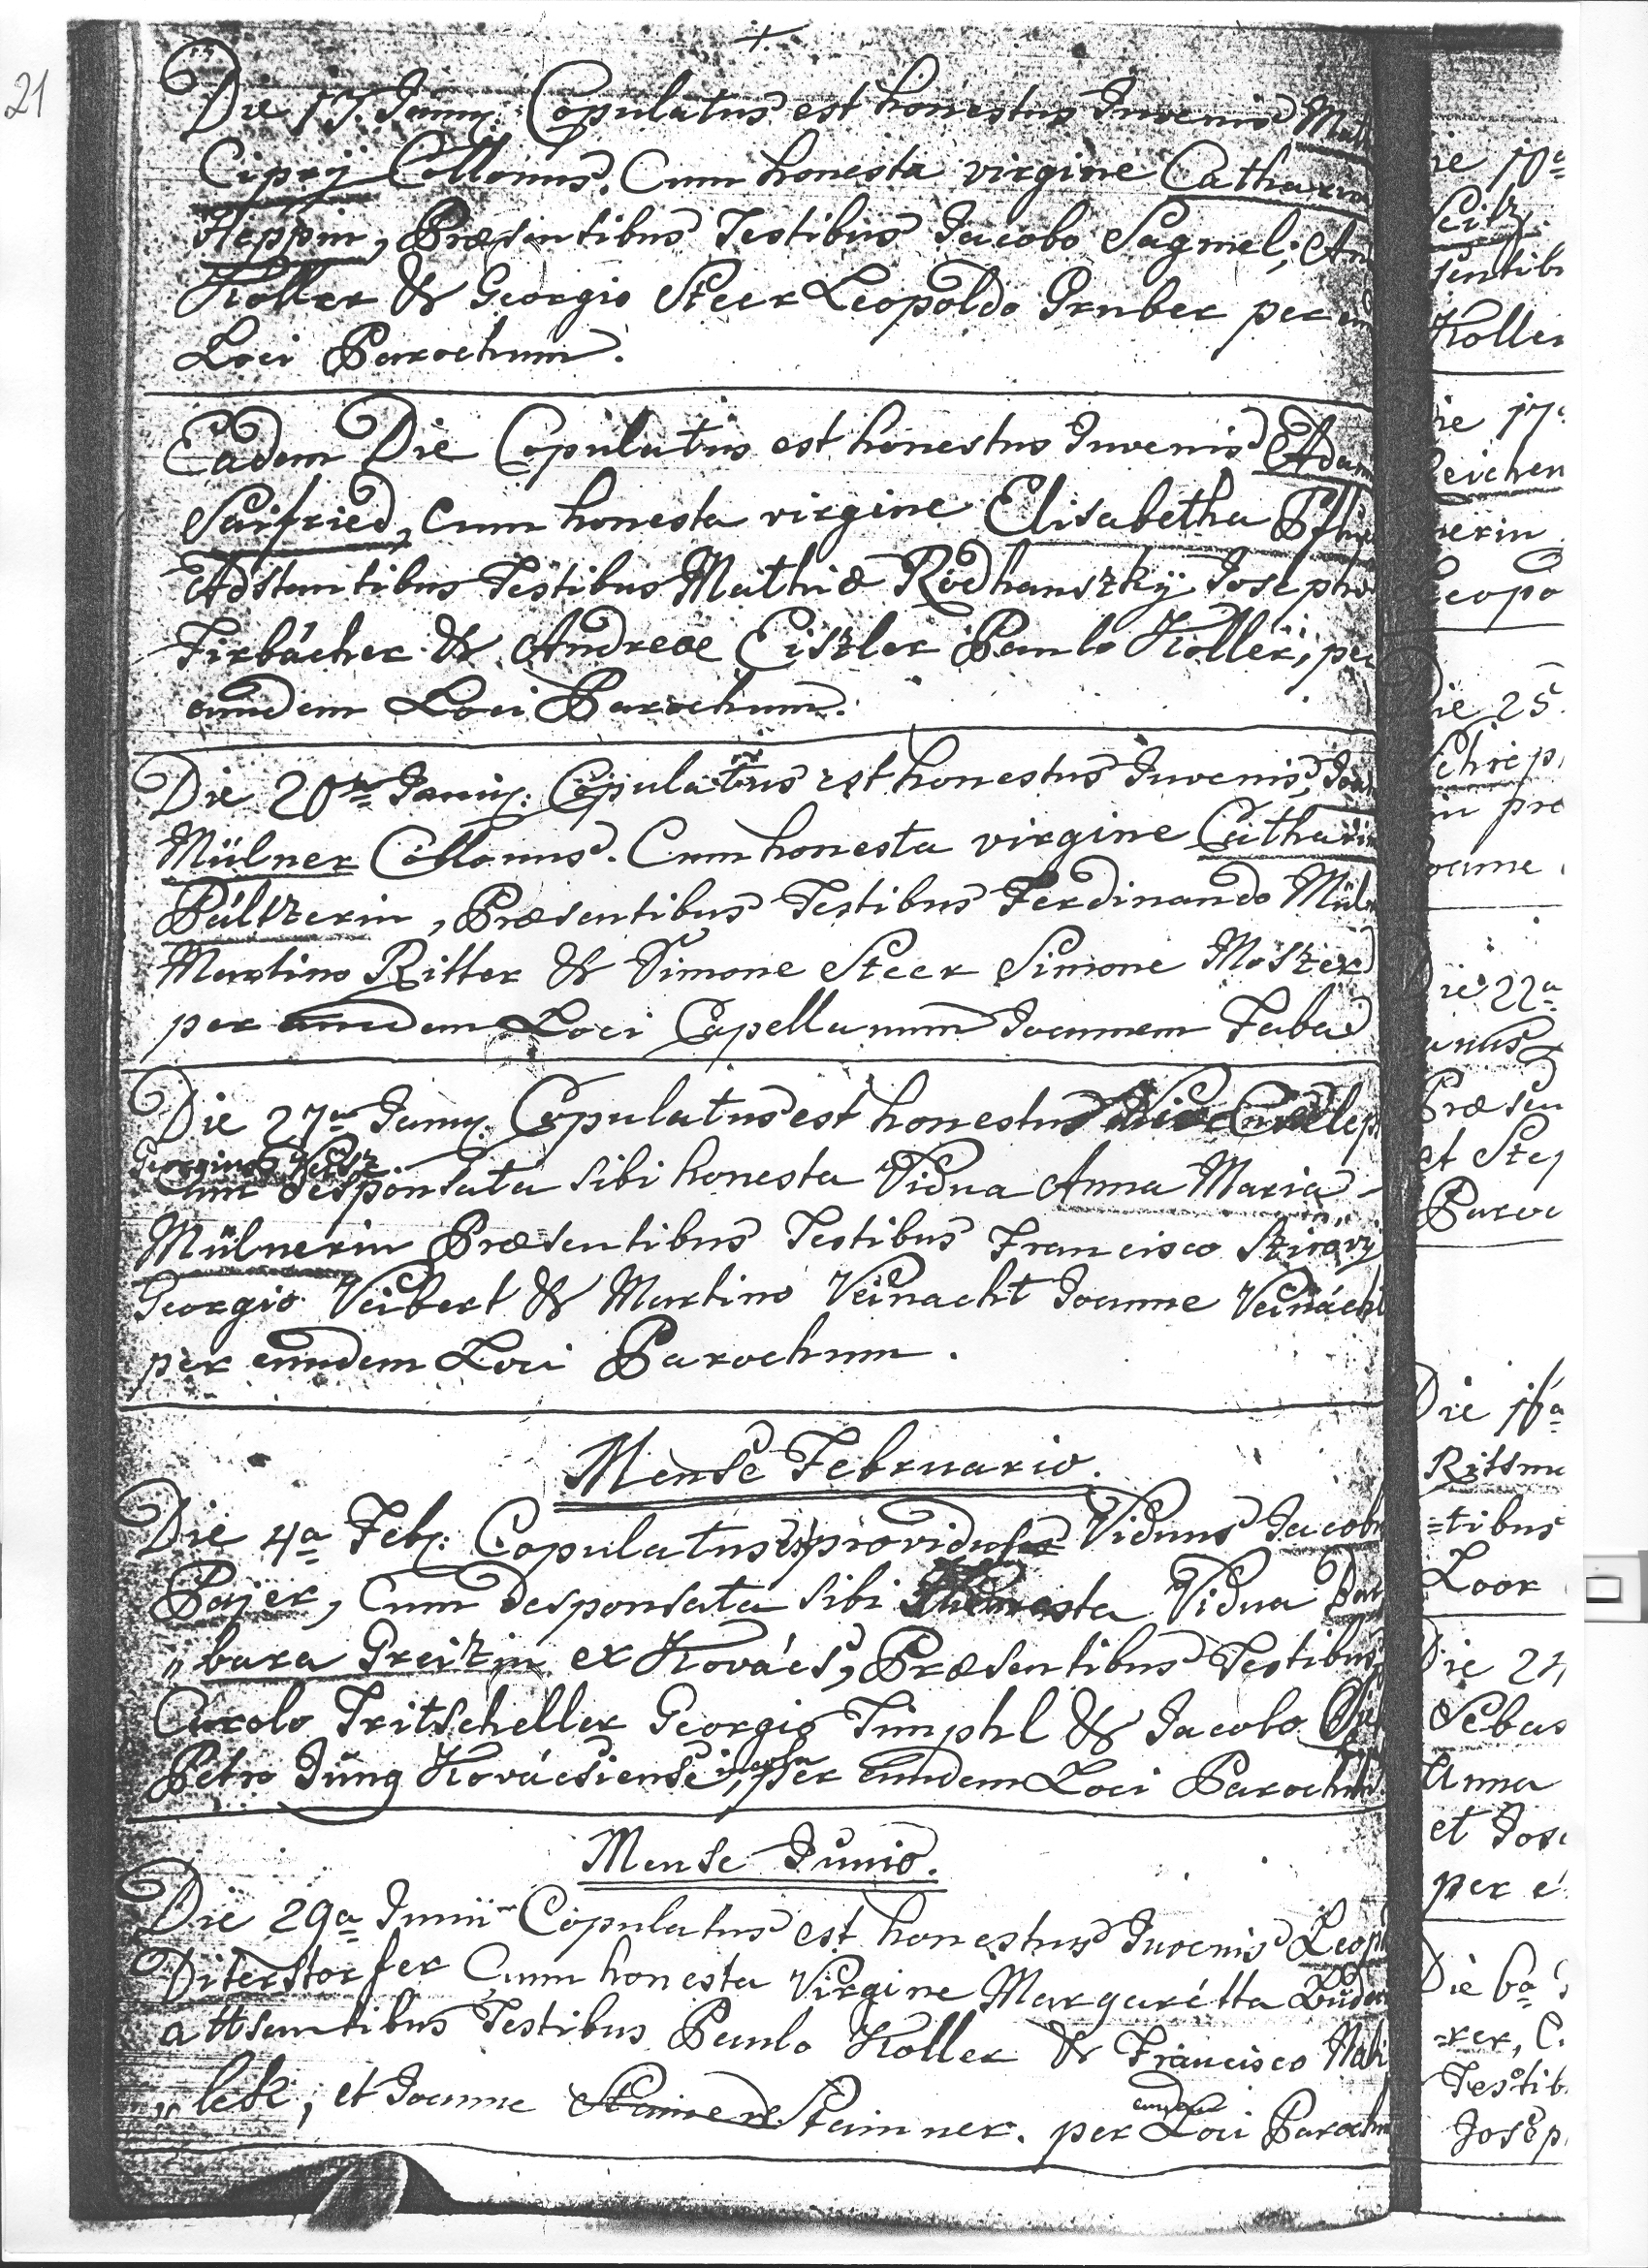 21
Die 17. Januy. Copulatus est honestus Juvenis Mat
Cipry Collonus. Cum honesta virgine Catharin
Heppin, Præsentibus Testibus Jacobo Sagmel; An
Koller & Georgio Steer Leopoldo Gruber per
Loci Parochum.
Eadem Die Copulatus est honestus Juvenis Adam
Saifried, Cum honesta virgine Elisabetha
Adstantibus Testibus Mathia Rodhanszky Josepho
Firbácher & Andreæ Eiszler Paulo Koller; per
eundem Loci Parochum.
Die 20ma Januy. Copulatus est honestus Juvenis, Joan
Mülner Collonus. Cum honesta virgine Catharin
Pültzerin, Præsentibus Testibus Ferdinando Müln
Martino Ritter & Simone Steer Simone Moszer
per eundem Loci Capellanum Joannem Faba
Die 27a Januy. Copulatus est honestus
Georgius Veisz
Cum desponsata sibi honesta Vidua Anna Maria
Mülnerin Præsentibus Testibus Francisco
Georgio Veibert & Martino Veinacht Joanne Veinácht
per eundem Loci Parochum.
Mense Februario.
Die 4a Feb. Copulatus est providus Viduus Jacob
Pajer, Cum desponsata sibi honesta Vidua Bar
„bara Greizin ex Kovács, Præsentibus Testibus
Carolo Tritscheller Georgio Timphl & Jacobo
Petro Jung Kovácsiense incola, per eundem Loci Parochum
Mense Junio.
Die 29a Junii Copulatus est honestus Juvenis Leop
Diterstorfer Cum honesta Virgine Margarétta
attsentibus Testibus Paulo Koller & Francisco
„lek; et Joanne Stainer Stainner. per eundem Loci Paroch
ie 10a
Seitz
sentib
Kolle
ie 17a
eichen
nerin
Leopo
Die 25
Schrep
in pre
oanne
Die 22a
anus
Præsen
et Step
Paroc
Die 16a
Rittm
=tibus
Loor
Die 24
Sebas
Anna
et Jos
per e
Die 6a
=rer, C.
Testib
Josep